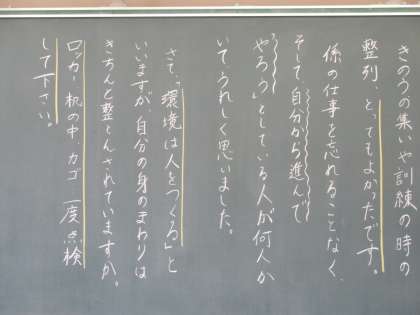 きのうの集いや訓練の時の
整列、とってもよかったです。
係の仕事を忘れることなく、
そして、自分から進んで
やろうとしている人が何人か
いて、うれしく思いました。
さて、「環境は人をつくる」と
いいますが、自分の身のまわりは
きちんと整とんされていますか。
ロッカー、机の中、カゴ、一度点検
して下さい。